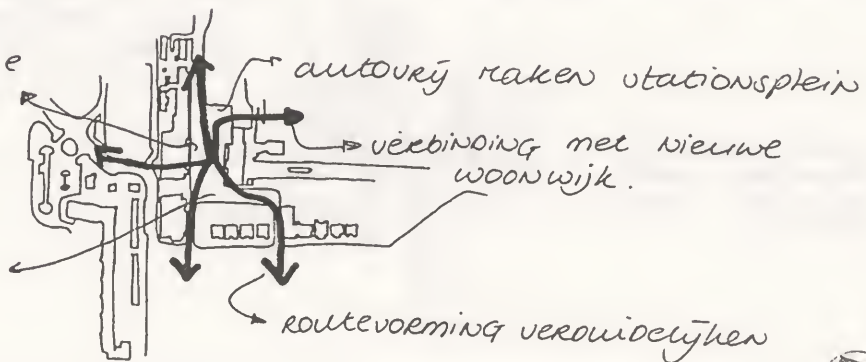 e
autovrij maken stationsplein
verbinding met nieuwe
woonwijk.
routevorming verduidelijken